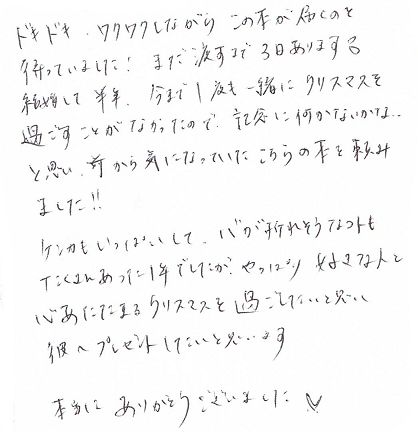 ドキドキ、ワクワクしながら この本が届くのを
待っていました! まだ渡すまで3日あります
結婚して半年、今まで1度も一緒にクリスマスを
過ごすことがなかったので、記念に何かないかな..
と思い、前から気になっていたこちらの本を頼み
ました!!
ケンカもいっぱいして、心が折れそうなコトも
たくさんあった1年でしたが、やっぱり 好きな人と
心あたたまるクリスマスを過ごしたいと思い
彼へプレゼントしたいと思います
本当に ありがとうございました